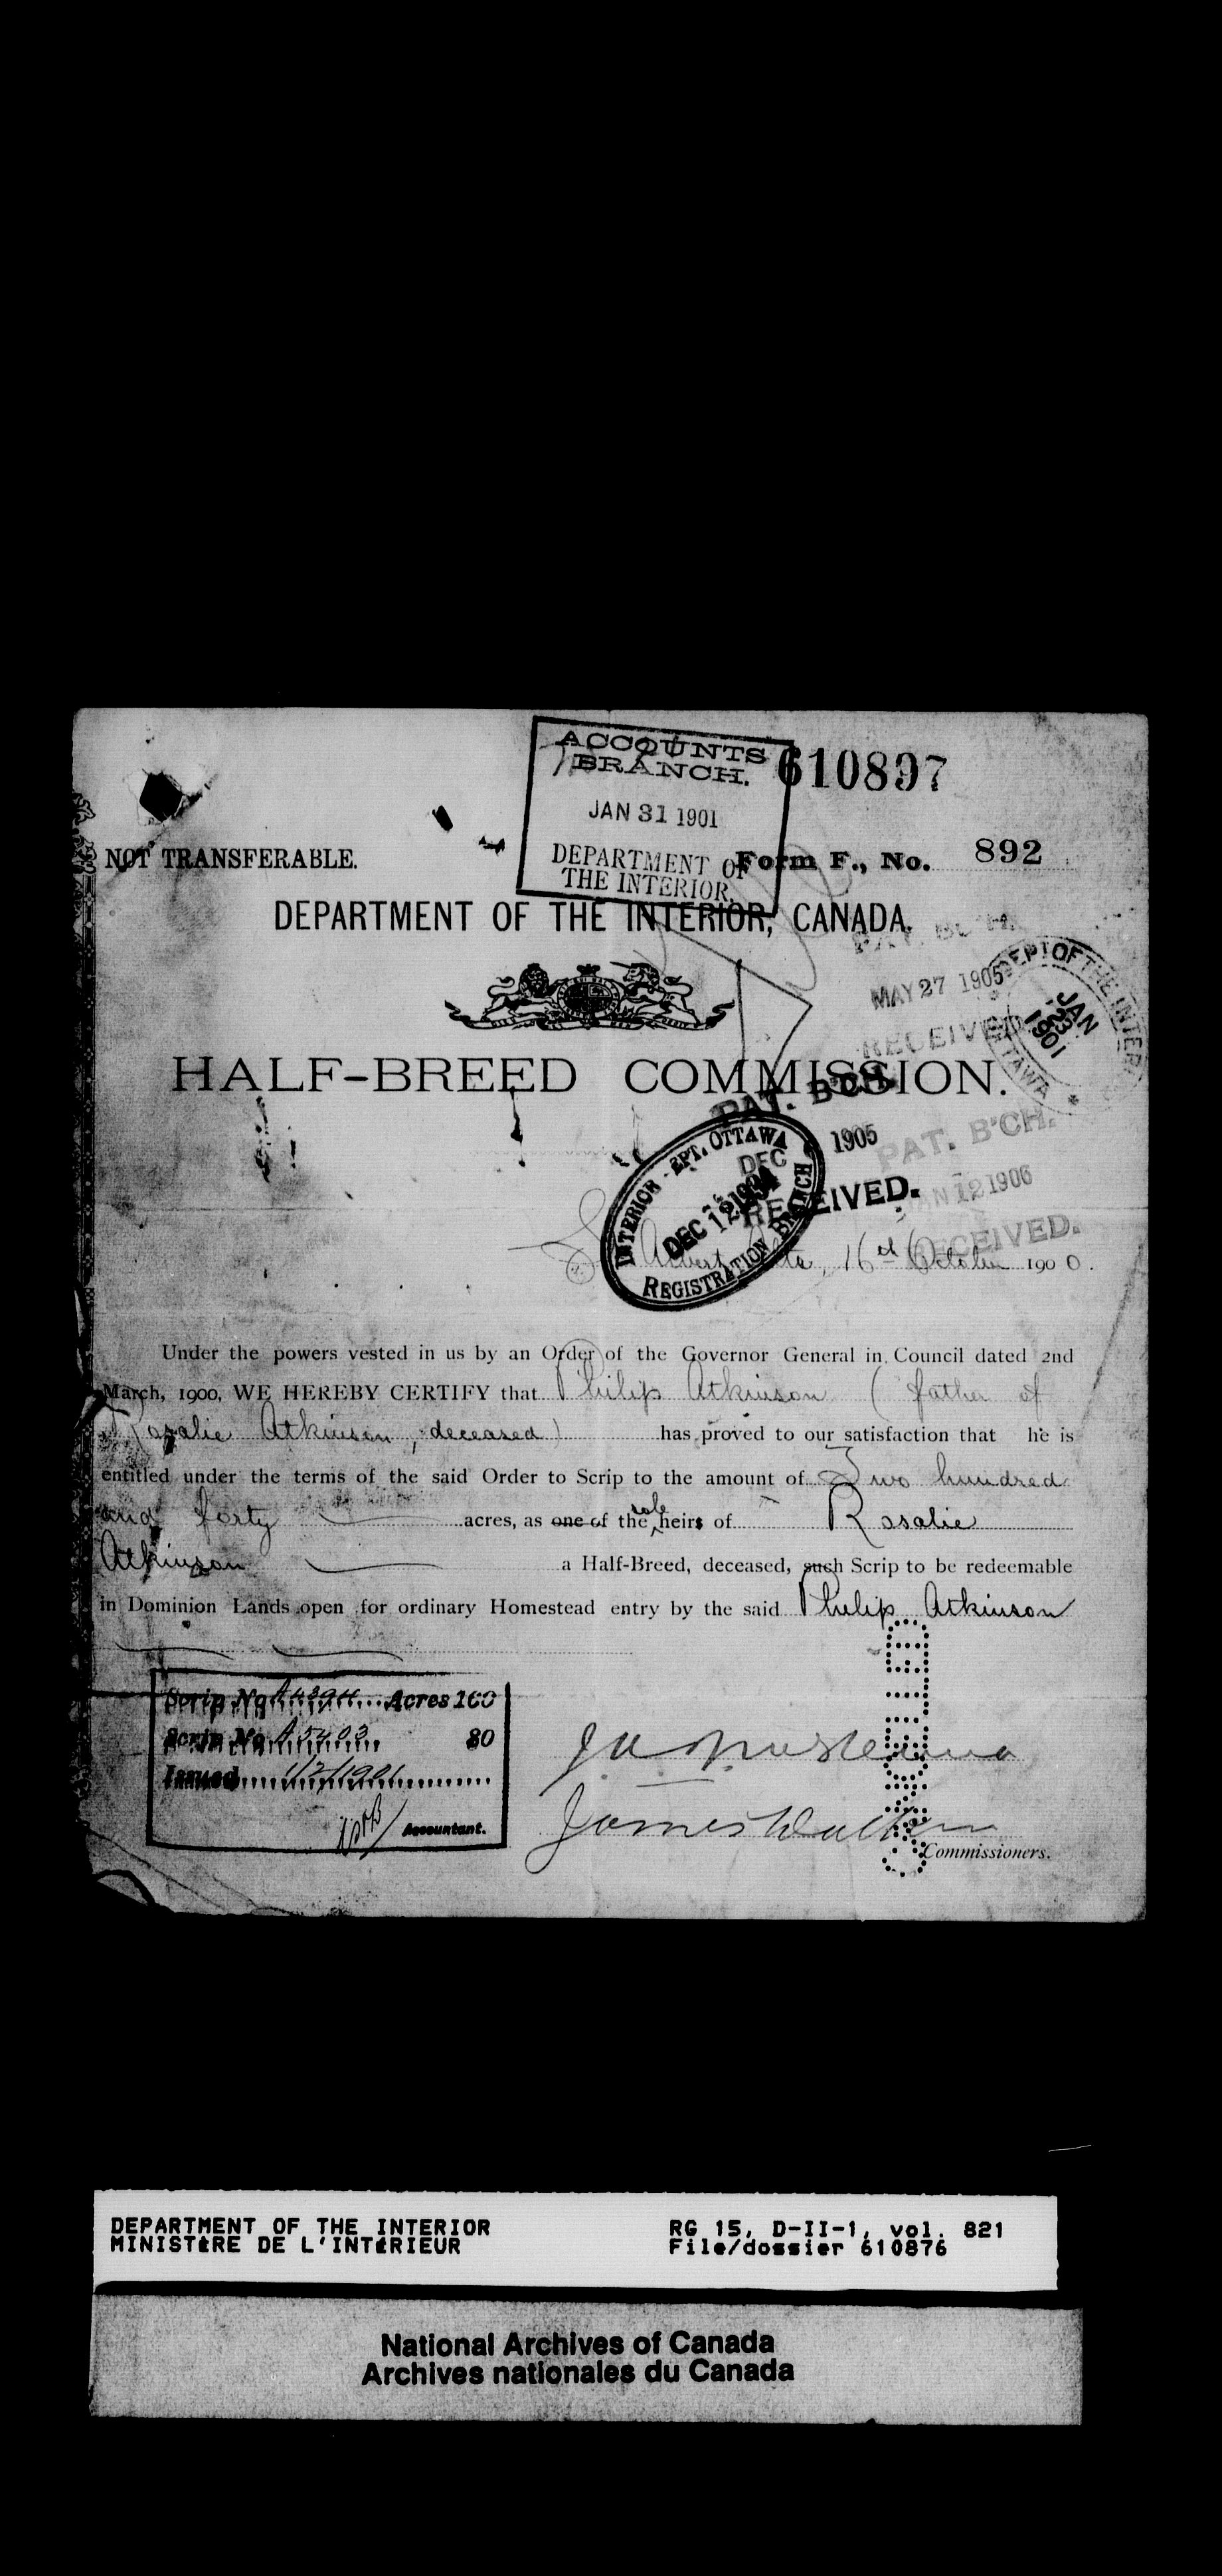 ACCOUNTS
BRANCH.
JAN 31 1901
DEPARTMENT OF
THE INTERIOR.
610897
NOT TRANSFERABLE.
Form F., No. 892
DEPARTMENT OF THE INTERIOR, CANADA.
PAT. B'CH.
MAY 27 1905
RECEIVED
DEPT OF THE INTERIOR
JAN
23
1901
OTTAWA
HALF-BREED COMMISSION.
PAT. B'CH.
DEC 1905
RECEIVED.
PAT. B'CH.
JAN 12 1906
RECEIVED.
INTERIOR DEPT. OTTAWA
DEC 12 1934
REGISTRATION BRANCH
St Albert Alta, 16th October 1900.
Under the powers vested in us by an Order of the Governor General in Council dated 2nd
March, 1900, WE HEREBY CERTIFY that Philip Atkinson ( father of
Rosalie Atkinson, deceased) has proved to our satisfaction that he is
entitled under the terms of the said Order to Scrip to the amount of Two hundred
and forty acres, as one of the sole heirs of Rosalie
Atkinson a Half-Breed, deceased, such Scrip to be redeemable
in Dominion Lands open for ordinary Homestead entry by the said Philip Atkinson
Scrip No A4394 Acres 160
Scrip No A5403 80
Issued 1/2/1901
Accountant.
James Walker
Commissioners.
DEPARTMENT OF THE INTERIOR
MINISTÈRE DE L'INTÉRIEUR
RG 15, D-II-1, vol. 821
File/dossier 610876
National Archives of Canada
Archives nationales du Canada